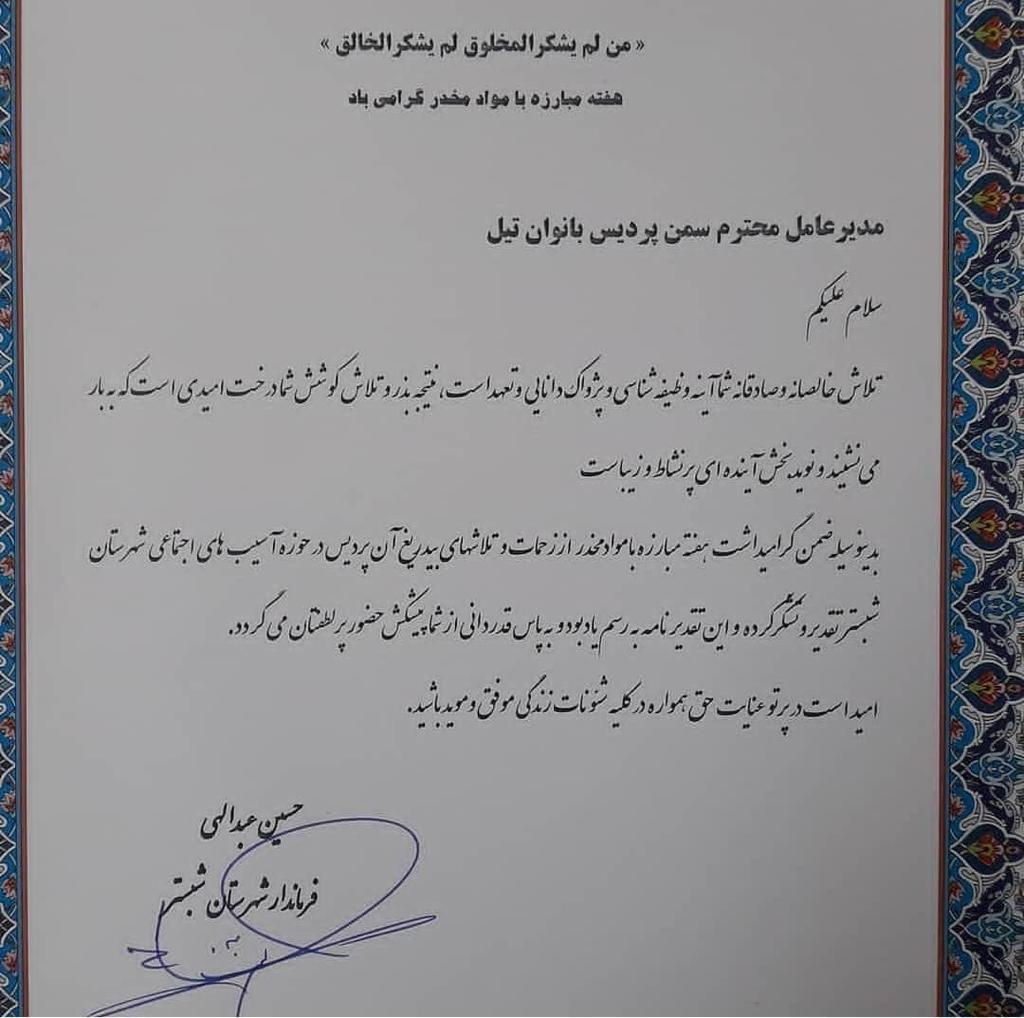 « من لم یشکر المخلوق لم یشکر الخالق »
هفته مبارزه با مواد مخدر گرامی باد
مدیرعامل محترم سمن پردیس بانوان تیل
سلام علیکم
تلاش خالصانه و صادقانه شما آینه وظیفه شناسی و پژواک دانایی و تعهد است، نتیجه بذر و تلاش کوشش شما درخت امیدی است که به بار
می نشیند و نوید بخش آینده ای پرنشاط و زیباست
بدینوسیله ضمن گرامیداشت هفته مبارزه با مواد مخدر از زحمات و تلاشهای بیدریغ آن پردیس در حوزه آسیب های اجتماعی شهرستان
شبستر تقدیر و تشکر کرده و این تقدیرنامه به رسم یادبود و به پاس قدردانی از شما پیشکش حضور پر لطفتان می گردد.
امید است در پرتو عنایت حق همواره در کلیه شئونات زندگی موفق و موید باشید.
حسین عبدالهی
فرماندار شهرستان شبستر